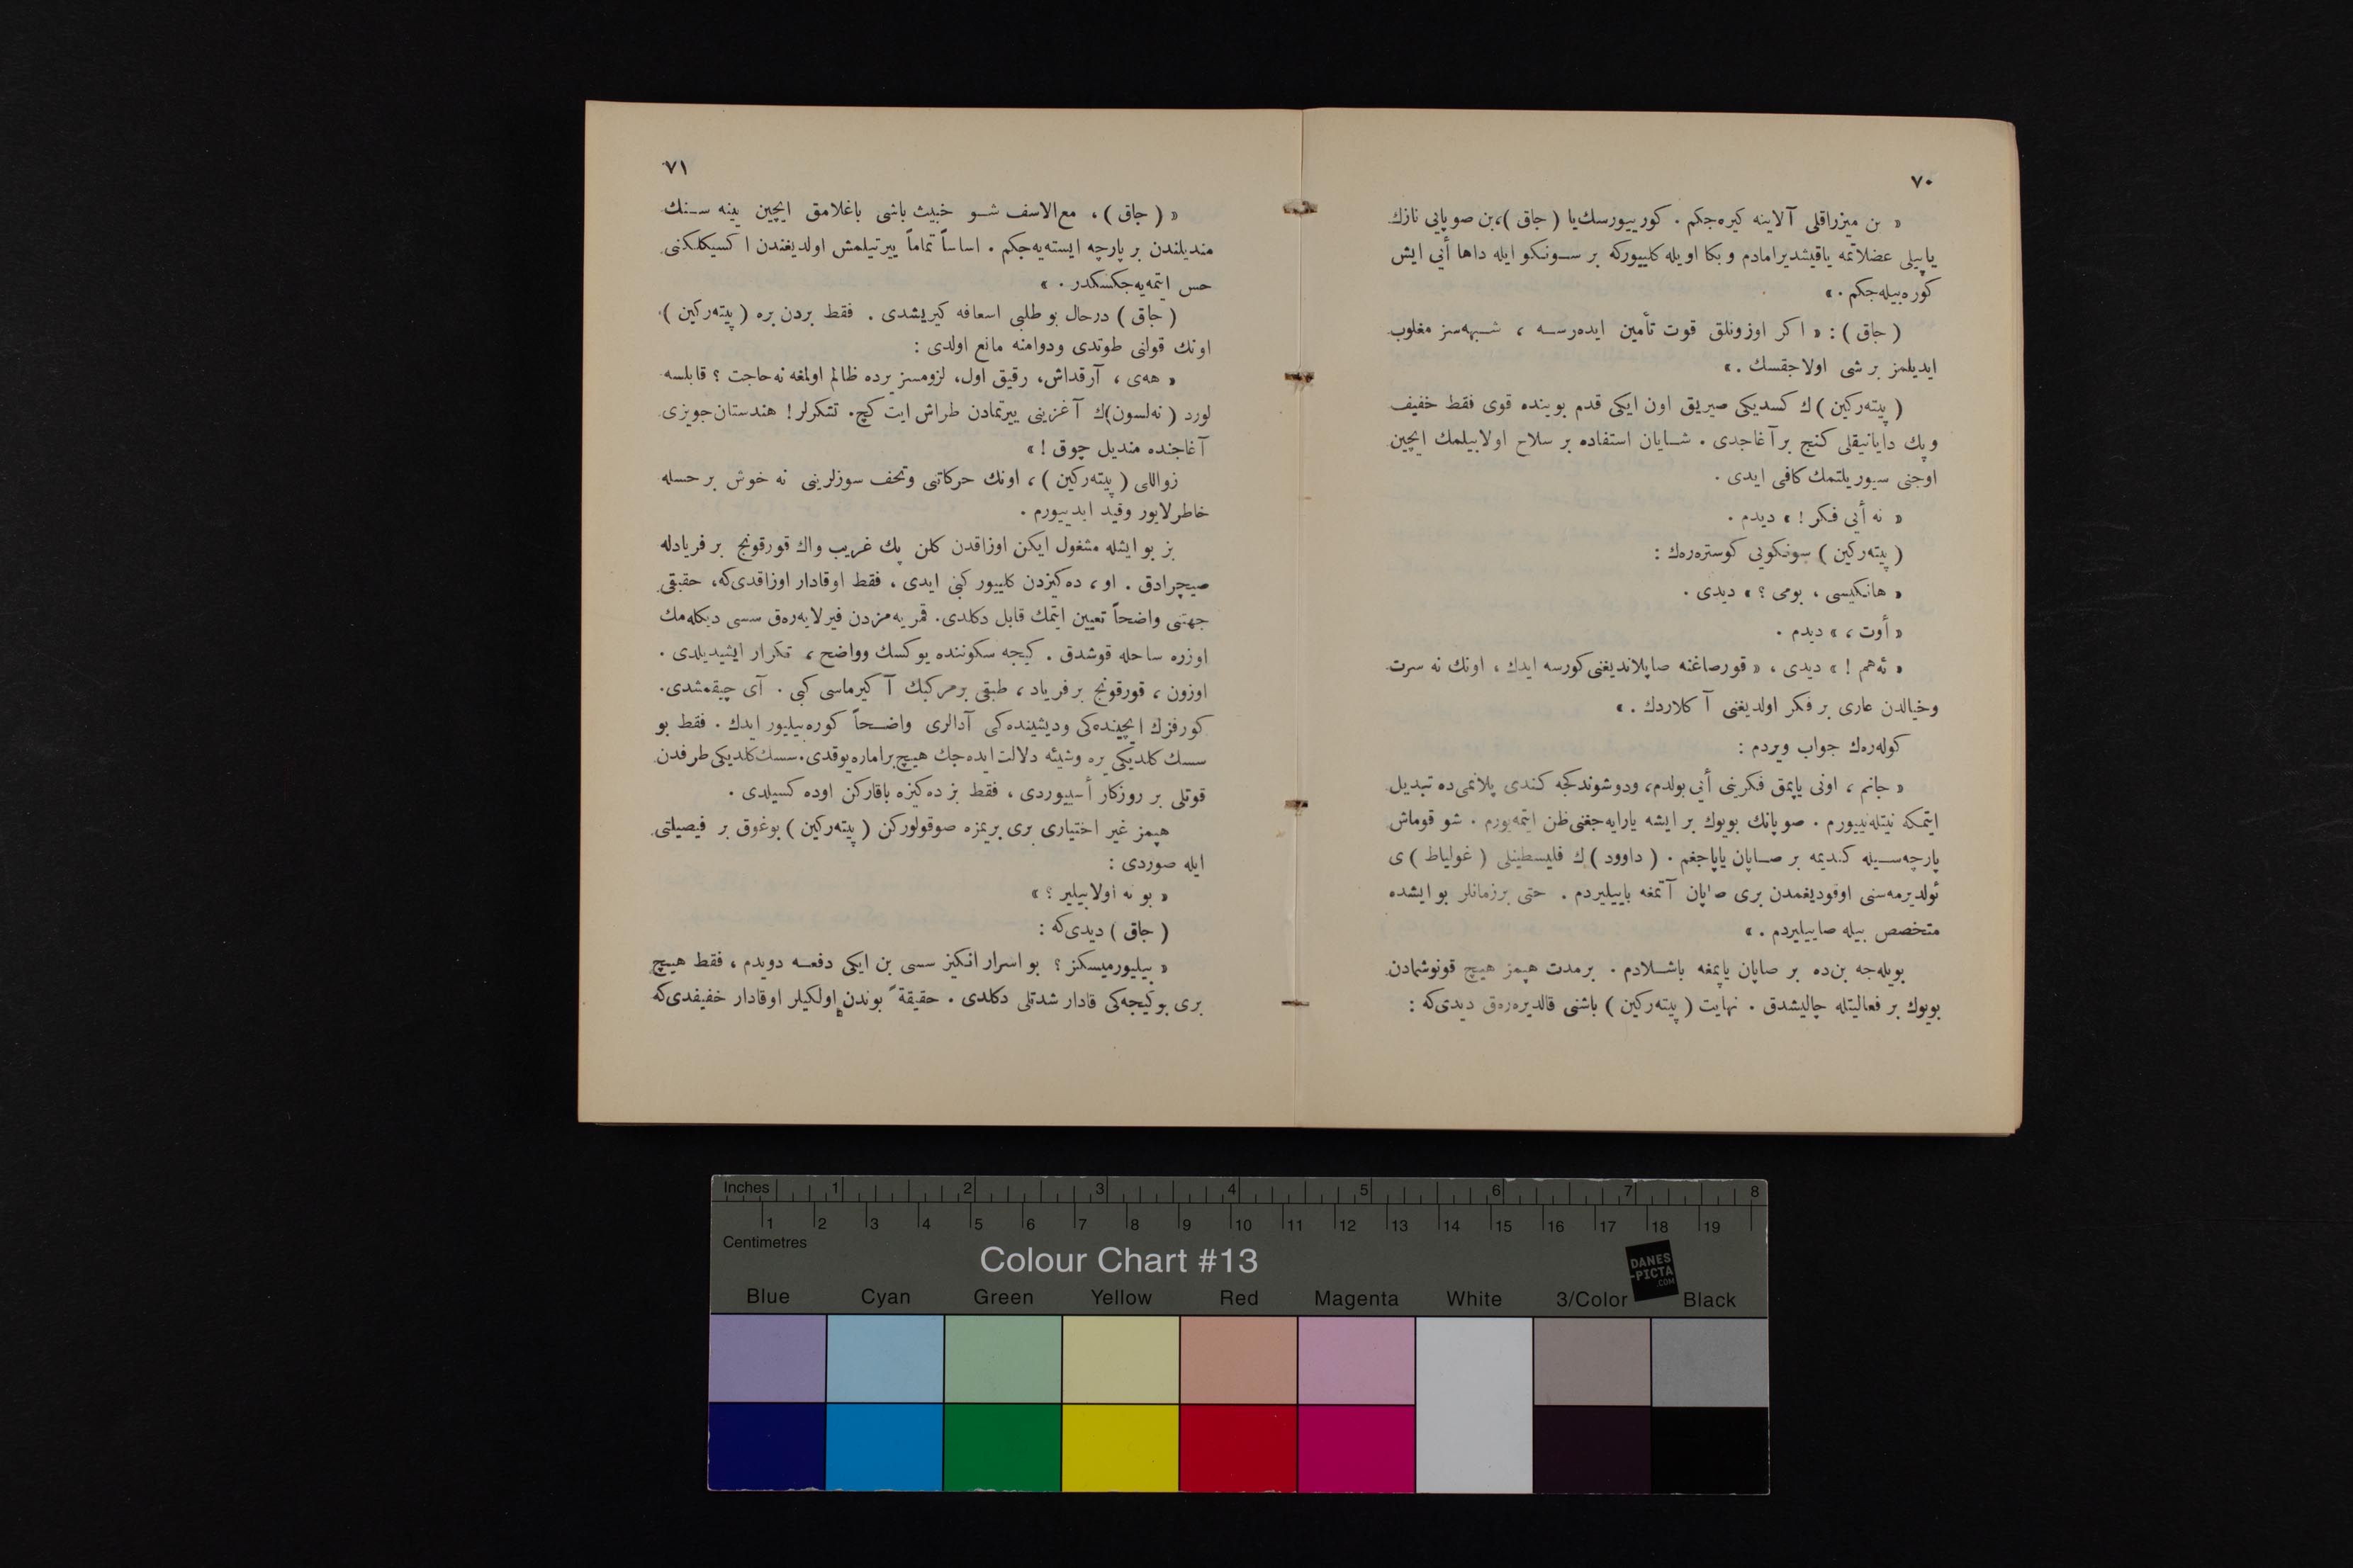 ٧٠
« بن ميزراقلى آلاينه كيره‌جكم . كورييورسك‌يا ( جاق )، بن صوپايى نازك
ياپيلى عضلاتمه ياقيشديرامادم و بكا اويله كلييوركه بر سونكو ايله داها أيى ايش
كوره‌بيله‌جكم . »
( جاق ) : « اكر اوزونلق قوت تأمين ايده‌رسه ، شبهه‌سز مغلوب
ايديلمز بر شى اولاجقسك . »
( پيته‌ركين ) ك كسديكى صيريق اون ايكى قدم بوينده قوى فقط خفيف
وپك دايانيقلى كنج بر آغاجدى . شايان استفاده بر سلاح اولابيلمك ايچين
اوجنى سيوريلتمك كافى ايدى .
« نه أيى فكر ! » ديدم .
( پيته‌ركين ) سونكويى كوستره‌رك :
« هانكيسى ، بومى ؟ » ديدى .
« أوت ، » ديدم .
« ئه‌هم ! » ديدى ، « قورصاغنه صاپلانديغنى كورسه ايدك ، اونك نه سرت
وخيالدن عارى بر فكر اولديغنى آ كلاردك . »
كوله‌رك جواب ويردم :
« جانم ، اونى ياپمق فكرينى أيى بولدم، ودوشوندكجه كندى پلانمى‌ده تبديل
ايتمكه نيتله‌نييورم . صوپانك بويوك بر ايشه يارايه‌جغنى ظن ايتمه‌يورم . شو قوماش
پارچه‌سيله كنديمه بر صاپان ياپاجغم . ( داوود ) ك فليسطينلى ( غولياط ) ى
ئولديرمه‌سنى اوقوديغمدن برى صاپان آتمغه باييليردم . حتى برزمانلر بو ايشده
متخصص بيله صاييليردم . »
بويله‌جه بن‌ده بر صاپان ياپمغه باشلادم . برمدت هپمز هيچ قونوشمادن
بويوك بر فعاليتله چاليشدق . نهايت ( پيته‌ركين ) باشنى قالديره‌رق ديدى‌كه :
٧١
« ( جاق ) ، مع‌الاسف شو خبيث باشى باغلامق ايچين يينه سنك
منديلندن بر پارچه ايسته‌يه‌جكم . اساساً تماماً ييرتيلمش اولديغندن ا كسيكلكنى
حس ايتمه‌يه‌جكسكدر . »
( جاق ) درحال بو طلبى اسعافه كيريشدى . فقط بردن بره ( پيته‌ركين )
اونك قولنى طوتدى ودوامنه مانع اولدى :
« هه‌ى ، آرقداش، رقيق اول، لزومسز يرده ظالم اولمغه نه حاجت ؟ قابلسه
لورد ( نه‌لسون)ك آغزينى ييرتمادن طراش ايت كچ. تشكرلر ! هندستان جويزى
آغاجنده منديل چوق ! »
زواللى ( پيته‌ركين ) ، اونك حركاتنى وتحف سوزلرينى نه خوش بر حسله
خاطرلايور وقيد ايدييورم .
بز بو ايشله مشغول ايكن اوزاقدن كلن پك غريب واك قورقونج بر فريادله
صيچرادق . او ، ده‌كيزدن كلييور كبى ايدى ، فقط اوقادار اوزاقدى‌كه، حقيقى
جهتنى واضحاً تعيين ايتمك قابل دكلدى. قمريه‌مزدن فيرلايه‌رق سسى ديكله‌مك
اوزره ساحله قوشدق . كيجه سكوننده يوكسك وواضح ، تكرار ايشيديلدى .
اوزون ، قورقونج بر فرياد ، طبقى برمركبك آ كيرماسى كبى . آى چيقمشدى.
كورفزك ايچينده‌كى وديشينده‌كى آدالرى واضحاً كوره‌بيليور ايدك . فقط بو
سسك كلديكى يره وشيئه دلالت ايده‌جك هيچ براماره يوقدى. سسك كلديكى طرفدن
قوتلى بر روزكار أسييوردى ، فقط بز ده‌كيزه باقاركن اوده كسيلدى .
هپمز غير اختيارى برى بريمزه صوقولوركن ( پيته‌ركين ) بوغوق بر فيصيلتى
ايله صوردى :
« بو نه اولابيلير ؟ »
( جاق ) ديدى‌كه :
« بيليورميسكز ؟ بو اسرار انكيز سسى بن ايكى دفعه دويدم ، فقط هيچ
برى بو كيجه‌كى قادار شدتلى دكلدى . حقيقةً بوندن اولكيلر اوقادار خفيفدى‌كه
Inches 1 2 3 4 5 6 7 8
1 2 3 4 5 6 7 8 9 10 11 12 13 14 15 16 17 18 19
Centimetres
Colour Chart #13
DANES
-PICTA
.COM
Blue Cyan Green Yellow Red Magenta White 3/Color Black